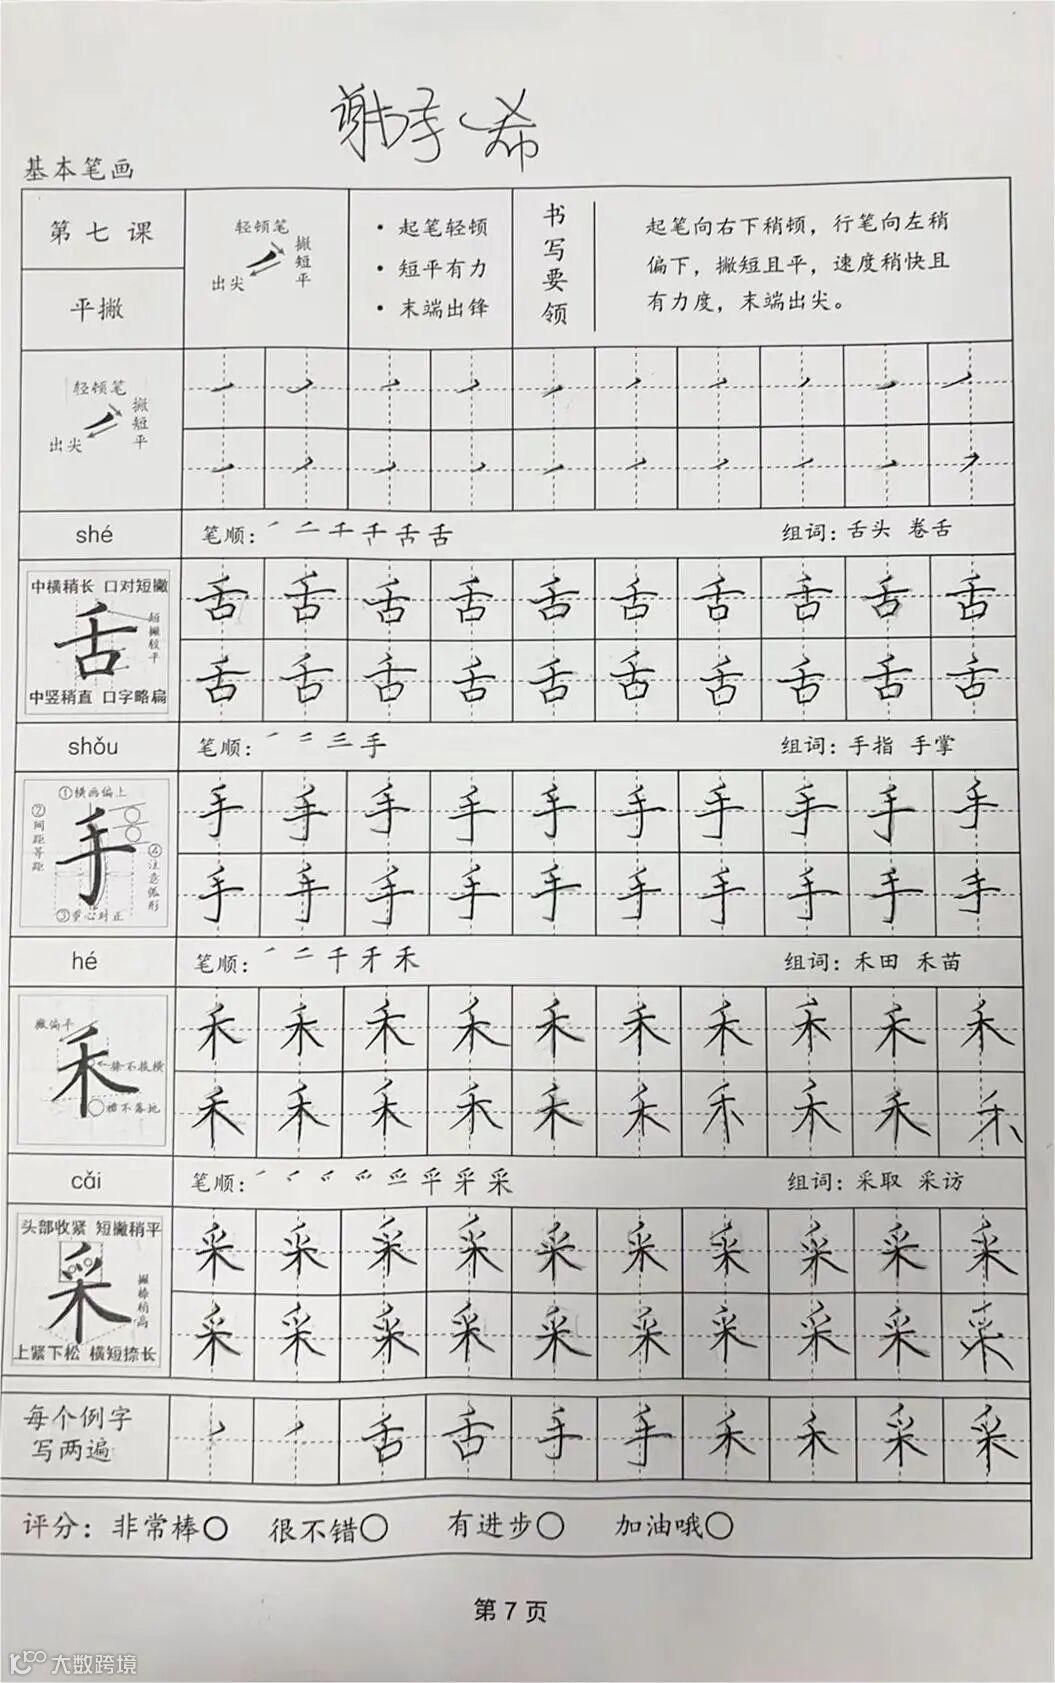 基本笔画
第七课
平撇
轻顿笔
撇短平
出尖
· 起笔轻顿
· 短平有力
· 末端出锋
书写要领
起笔向右下稍顿，行笔向左稍
偏下，撇短且平，速度稍快且
有力度，末端出尖。
轻顿笔
撇短平
出尖
shé
笔顺：㇒ 二 千 千 舌 舌
组词：舌头 卷舌
中横稍长 口对短撇
舌
短撇较平
中竖稍直 口字略扁
舌 舌 舌 舌 舌 舌 舌 舌 舌 舌
舌 舌 舌 舌 舌 舌 舌 舌 舌 舌
shǒu
笔顺：㇒ 二 三 手
组词：手指 手掌
①横画偏上
②间距等距
手
④注意弧形
③重心对正
手 手 手 手 手 手 手 手 手 手
手 手 手 手 手 手 手 手 手 手
hé
笔顺：㇒ 二 千 禾 禾
组词：禾田 禾苗
撇偏平
禾
捺不落地
禾 禾 禾 禾 禾 禾 禾 禾 禾 禾
禾 禾 禾 禾 禾 禾 禾 禾 禾 禾
cǎi
笔顺：采
组词：采取 采访
头部收紧 短撇稍平
采
撇捺稍高
上紧下松 横短捺长
采 采 采 采 采 采 采 采 采 采
采 采 采 采 采 采 采 采 采 采
每个例字
写两遍
舌 舌 手 手 禾 禾 采 采
评分：非常棒○ 很不错○ 有进步○ 加油哦○
第 7 页
大数跨境